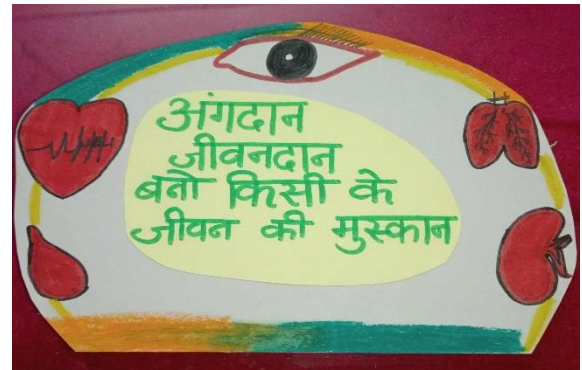 अंगदान
जीवनदान
बनो किसी के
जीवन की मुस्कान